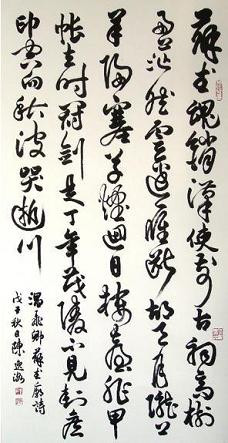 蘇武魂銷漢使前古祠高樹
兩茫然雲邊雁斷胡天月隴上
羊歸塞草煙迴日樓臺非甲
帳去時冠劍是丁年茂陵不見封侯
印空向秋波哭逝川
溫飛卿蘇武廟詩
戊子秋日陳逸